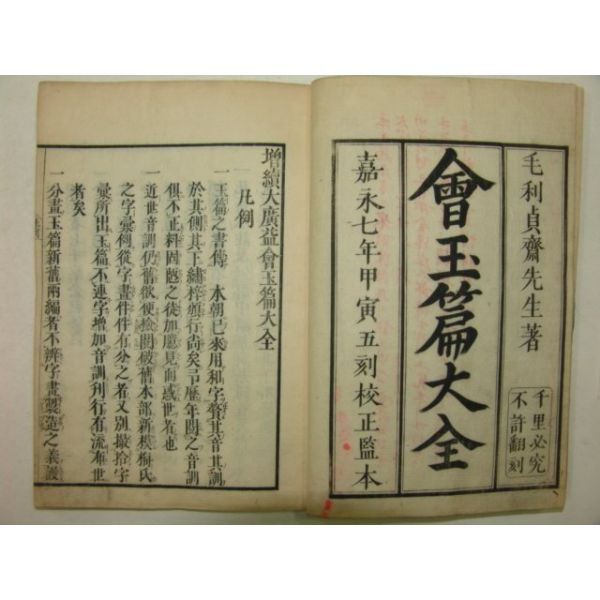 毛利貞齋先生著
千里必究
不許翻刻
會玉篇大全
嘉永七年甲寅五刻校正監本
增續大廣益會玉篇大全
凡例
一玉篇之書傳 本朝已來用和字贅其音其訓
於其側其工繡梓頗行尚矣今歷年閱之音訓
俱不正
一近世音訓仍舊欲便撿閱破舊本部新模梅氏
之字彙傍從字畫件件有分之者又別撮捨字
彙所出玉篇不連字增加音訓刊行有流布世
者矣
一分畫玉篇新舊兩編者不辨字畫製造之義謾